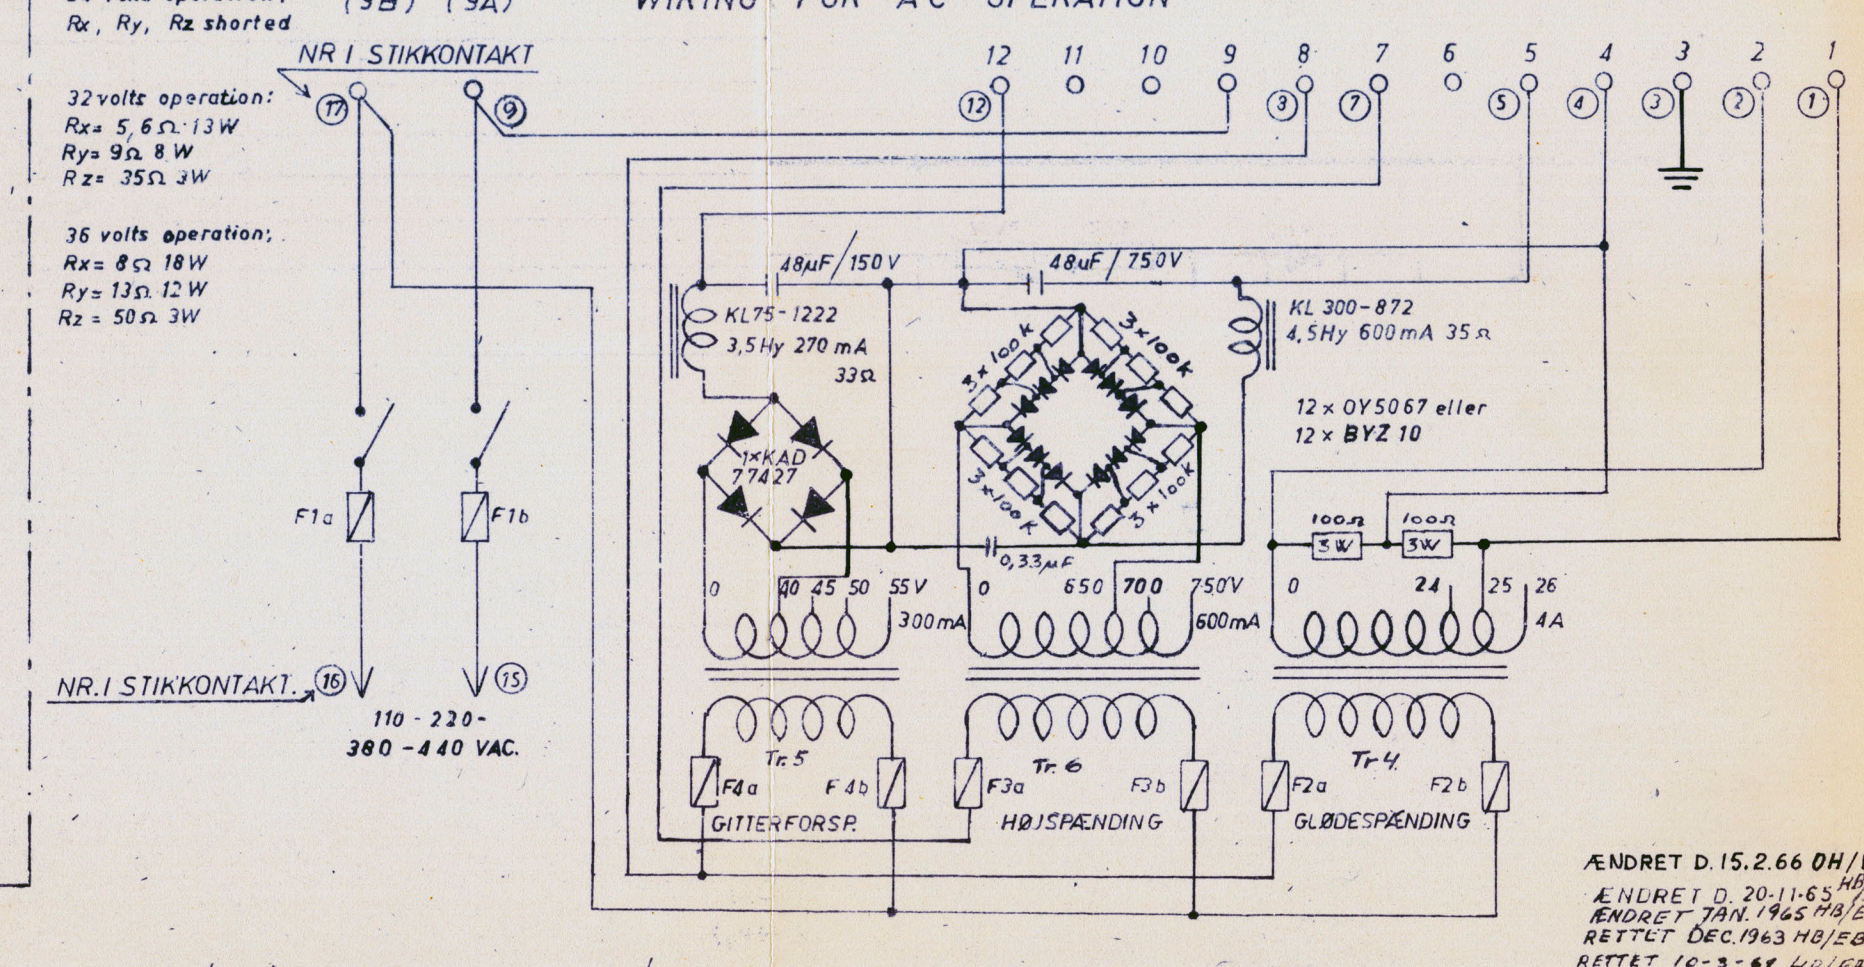 Rx, Ry, Rz shorted
(9B) (9A)
WIRING FOR AC OPERATION
NR 1 STIKKONTAKT
32 volts operation:
Rx= 5,6Ω 13W
Ry= 9Ω 8W
Rz= 35Ω 3W
36 volts operation;
Rx= 8Ω 18W
Ry= 13Ω 12W
Rz = 50Ω 3W
17 9
12 11 10 9 8 7 6 5 4 3 2 1
12 3 7 5 4 3 2 1
48µF/150V
48uF/750V
KL75-1222
3,5Hy 270mA
33Ω
KL 300-872
4,5Hy 600mA 35Ω
3x100K
3x100K
3x100K
3x100K
1xKAD
77427
12x OY5067 eller
12x BYZ 10
F1a F1b
100Ω 100Ω
3W 3W
0,33µF
0 40 45 50 55V
300mA
0 650 700 750V
600mA
0 24 25 26
4A
NR.1 STIKKONTAKT. 16 15
110-220-
380-440 VAC.
Tr.5
F4a F4b
GITTERFORSP.
Tr. 6
F3a F3b
HØJSPÆNDING
Tr4.
F2a F2b
GLØDESPÆNDING
ÆNDRET D.15.2.66 OH/
ÆNDRET D. 20-11-65 HB
ÆNDRET JAN.1965 HB/E
RETTET DEC.1963 HB/EB
RETTET